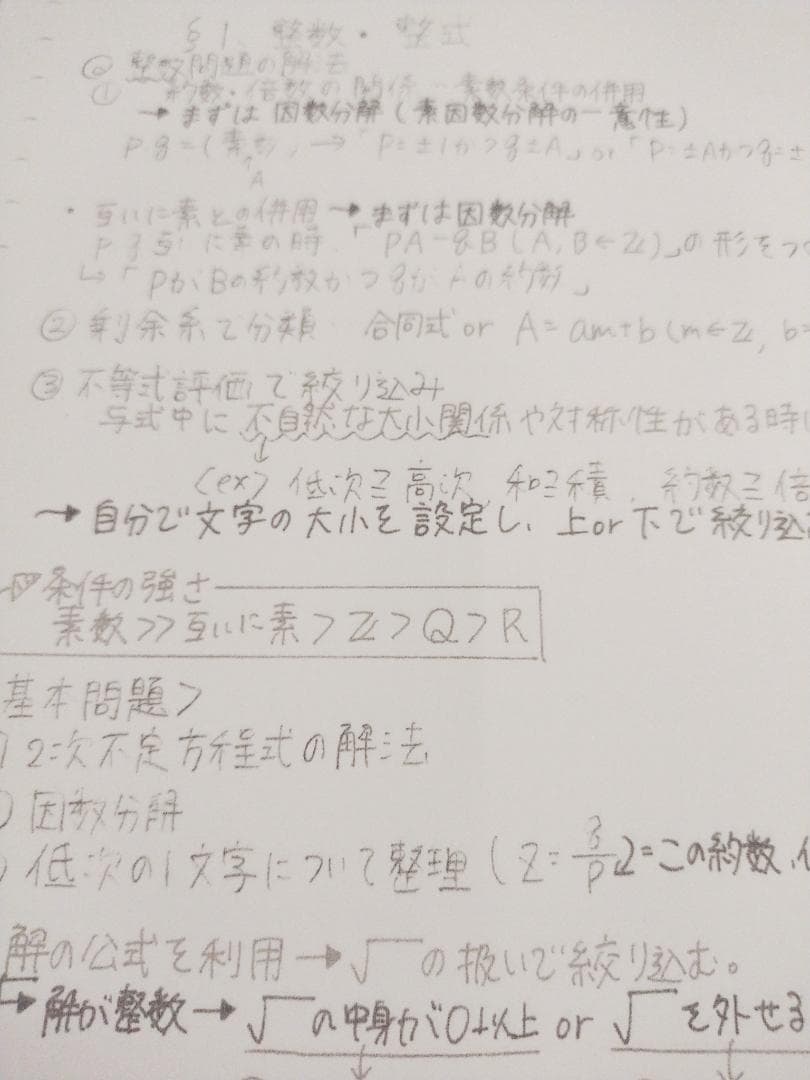 §1. 整数・整式
◎ 整数問題の解法
① 約数・倍数の関係 素数条件の併用
→ まずは 因数分解 (素因数分解の一意性)
Pq=(素数) → 「P=±1かつq=±A」or「P=±Aかつq=±
A
・互いに素との併用 → まずは因数分解
P 互いに素の時、「PA=qB (A, B∈ℤ)」の形をつ
↳「PがBの約数かつqがAの約数」
② 剰余系で分類 合同式 or A=am+b (m∈ℤ, b=
③ 不等式評価で絞り込み
与式中に 不自然な大小関係や対称性がある時
↓
<ex> 低次≧高次、和≧積、約数≧倍
→ 自分で文字の大小を設定し、上or下で絞り込
条件の強さ
素数>>互いに素>ℤ>Q>R
基本問題>
2次不定方程式の解法
因数分解
低次の1文字について整理 (Z=
解の公式を利用→√ の扱いで絞り込む。
→ 解が整数→√ の中身が0以上 or √ を外せる